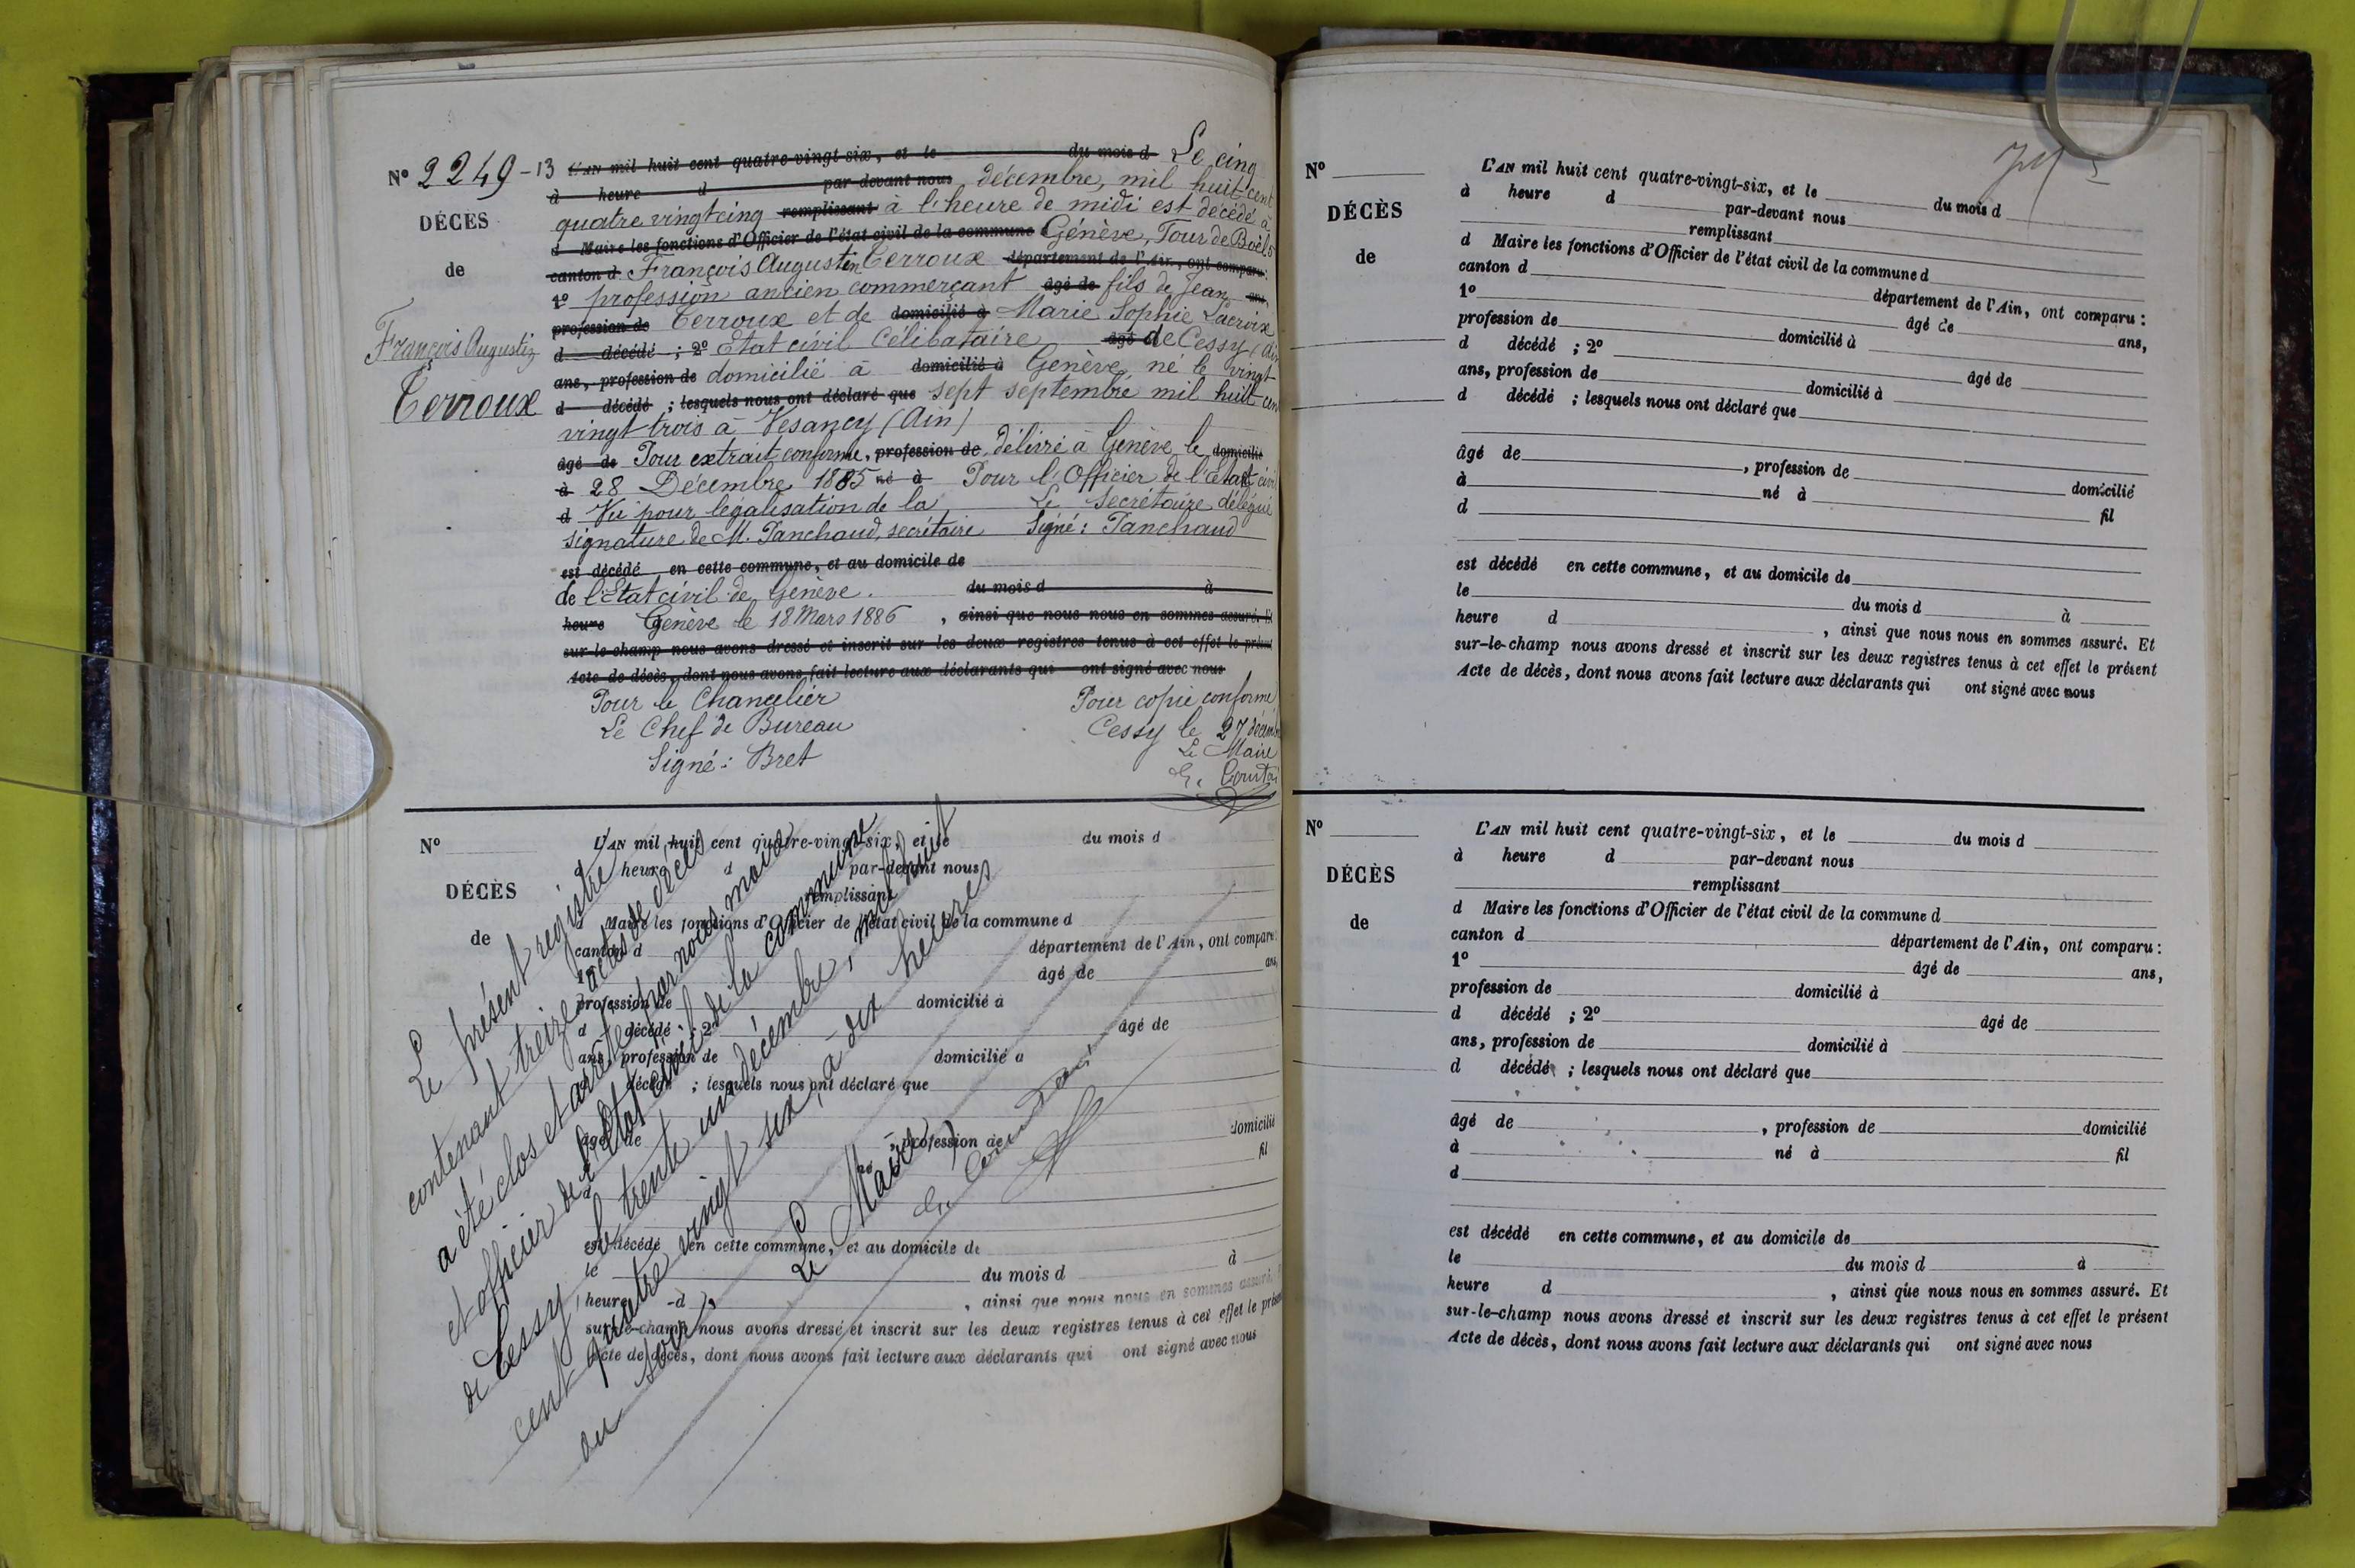 N° 2249-13
DÉCÈS
de
François Augustin
Terroux
L'AN mil huit cent quatre-vingt-six, et le du mois d Le cinq
à heure d par-devant nous décembre, mil huit cent
quatre vingt cinq remplissant à l'heure de midi est décédé à
d Maire les fonctions d'Officier de l'état civil de la commune Génève, Tour de
canton d François Augustin Terroux département de l'Ain, ont comparu :
1° profession ancien commerçant âgé de fils de Jean ans,
profession de Terroux et de domicilié à Marie Sophie Lacroix
d décédé ; 2° Etat civil Célibataire âgé de de Cessy (Ain
ans, profession de domicilié à domicilié à Genève, né le vingt
d décédé ; lesquels nous ont déclaré que sept septembre mil huit cen
vingt trois à Vesancy (Ain)
âgé de Pour extrait conforme, profession de délivré à Genève le domicilié
à 28 Décembre 1885 né à Pour l'Officier de l'état civil
d Vu pour légalisation de la Le Secrétaire délégué
signature de M. Panchaud, secrétaire Signé : Panchaud
est décédé en cette commune, et au domicile de
de l'Etat civil de Genève. du mois d à
heure Genève le 18 Mars 1886 , ainsi que nous nous en sommes assuré. Et
sur-le-champ nous avons dressé et inscrit sur les deux registres tenus à cet effet le présent
Acte de décès, dont nous avons fait lecture aux déclarants qui ont signé avec nous
Pour le Chancelier
Le Chef de Bureau
Signé : Bret
Pour copie conforme
Cessy le 27 décemb
Le Maire
N°
DÉCÈS
de
L'AN mil huit cent quatre-vingt-six, et le du mois d
à heure d par-devant nous
remplissant
d Maire les fonctions d'Officier de l'état civil de la commune d
canton d département de l'Ain, ont comparu :
1° âgé de ans,
profession de domicilié à
d décédé ; 2° âgé de
ans, profession de domicilié à
d décédé ; lesquels nous ont déclaré que
âgé de , profession de domicilié
à né à fil
d
est décédé en cette commune, et au domicile de
le du mois d à
heure d , ainsi que nous nous en sommes assuré.
sur-le-champ nous avons dressé et inscrit sur les deux registres tenus à cet effet le présent
Acte de décès, dont nous avons fait lecture aux déclarants qui ont signé avec nous
Le présent registre
contenant treize actes de décès
a été clos et arrêté par nous maire
et officier de l'état civil de la commune
de Cessy, le trente un décembre, mil huit
cent quatre vingt six, à dix heures
du soir,
Le Maire,
N°
DÉCÈS
de
L'AN mil huit cent quatre-vingt-six, et le du mois d
à heure d par-devant nous
remplissant
d Maire les fonctions d'Officier de l'état civil de la commune d
canton d département de l'Ain, ont comparu :
1° âgé de ans,
profession de domicilié à
d décédé ; 2° âgé de
ans, profession de domicilié à
d décédé ; lesquels nous ont déclaré que
âgé de , profession de domicilié
à né à fil
d
est décédé en cette commune, et au domicile de
le du mois d à
heure d , ainsi que nous nous en sommes assuré. Et
sur-le-champ nous avons dressé et inscrit sur les deux registres tenus à cet effet le présent
Acte de décès, dont nous avons fait lecture aux déclarants qui ont signé avec nous
N°
DÉCÈS
de
L'AN mil huit cent quatre-vingt-six, et le du mois d
à heure d par-devant nous
remplissant
d Maire les fonctions d'Officier de l'état civil de la commune d
canton d département de l'Ain, ont comparu :
1° âgé de ans,
profession de domicilié à
d décédé ; 2° âgé de
ans, profession de domicilié à
d décédé ; lesquels nous ont déclaré que
âgé de , profession de domicilié
à né à fil
d
est décédé en cette commune, et au domicile de
le du mois d à
heure d , ainsi que nous nous en sommes assuré. Et
sur-le-champ nous avons dressé et inscrit sur les deux registres tenus à cet effet le présent
Acte de décès, dont nous avons fait lecture aux déclarants qui ont signé avec nous